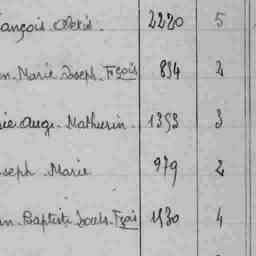 ançois 2220 5
n. Marie Joseph. Fçois 834 2
ie Ange. Mathurin. 1353 3
seph. Marie 979 2
n. Baptiste Louis. Fçois 1530 4